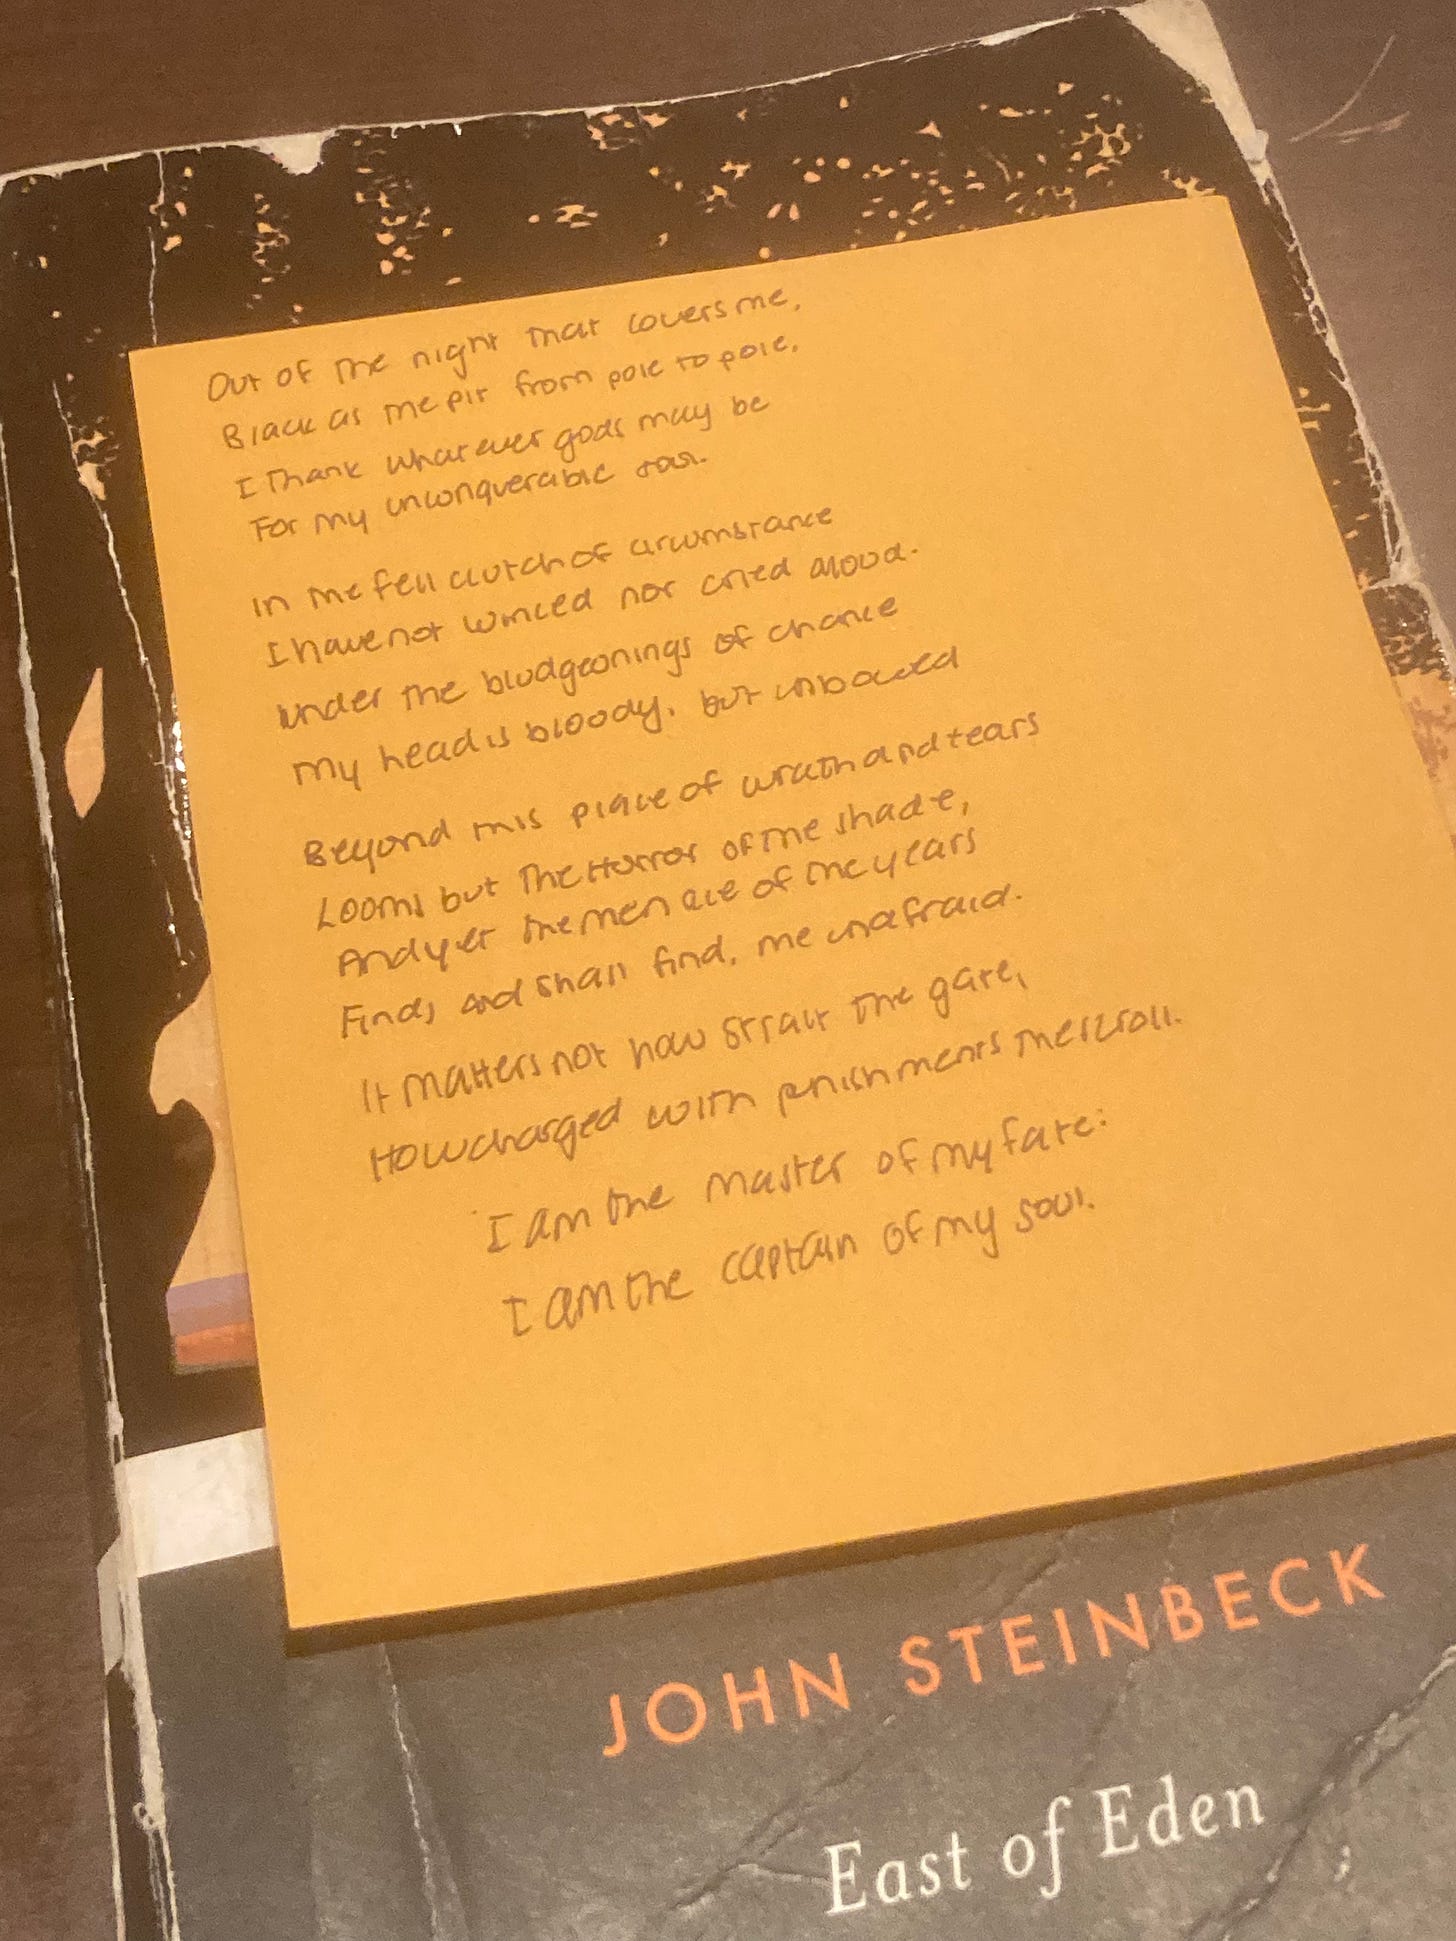 Out of the night that covers me,
Black as the pit from pole to pole,
I thank whatever gods may be
For my unconquerable soul.
In the fell clutch of circumstance
I have not winced nor cried aloud.
Under the bludgeonings of chance
My head is bloody, but unbowed
Beyond this place of wrath and tears
Looms but the Horror of the shade,
And yet the menace of the years
Finds, and shall find, me unafraid.
It matters not how strait the gate,
How charged with punishments the scroll.
I am the master of my fate:
I am the captain of my soul.
JOHN STEINBECK
East of Eden